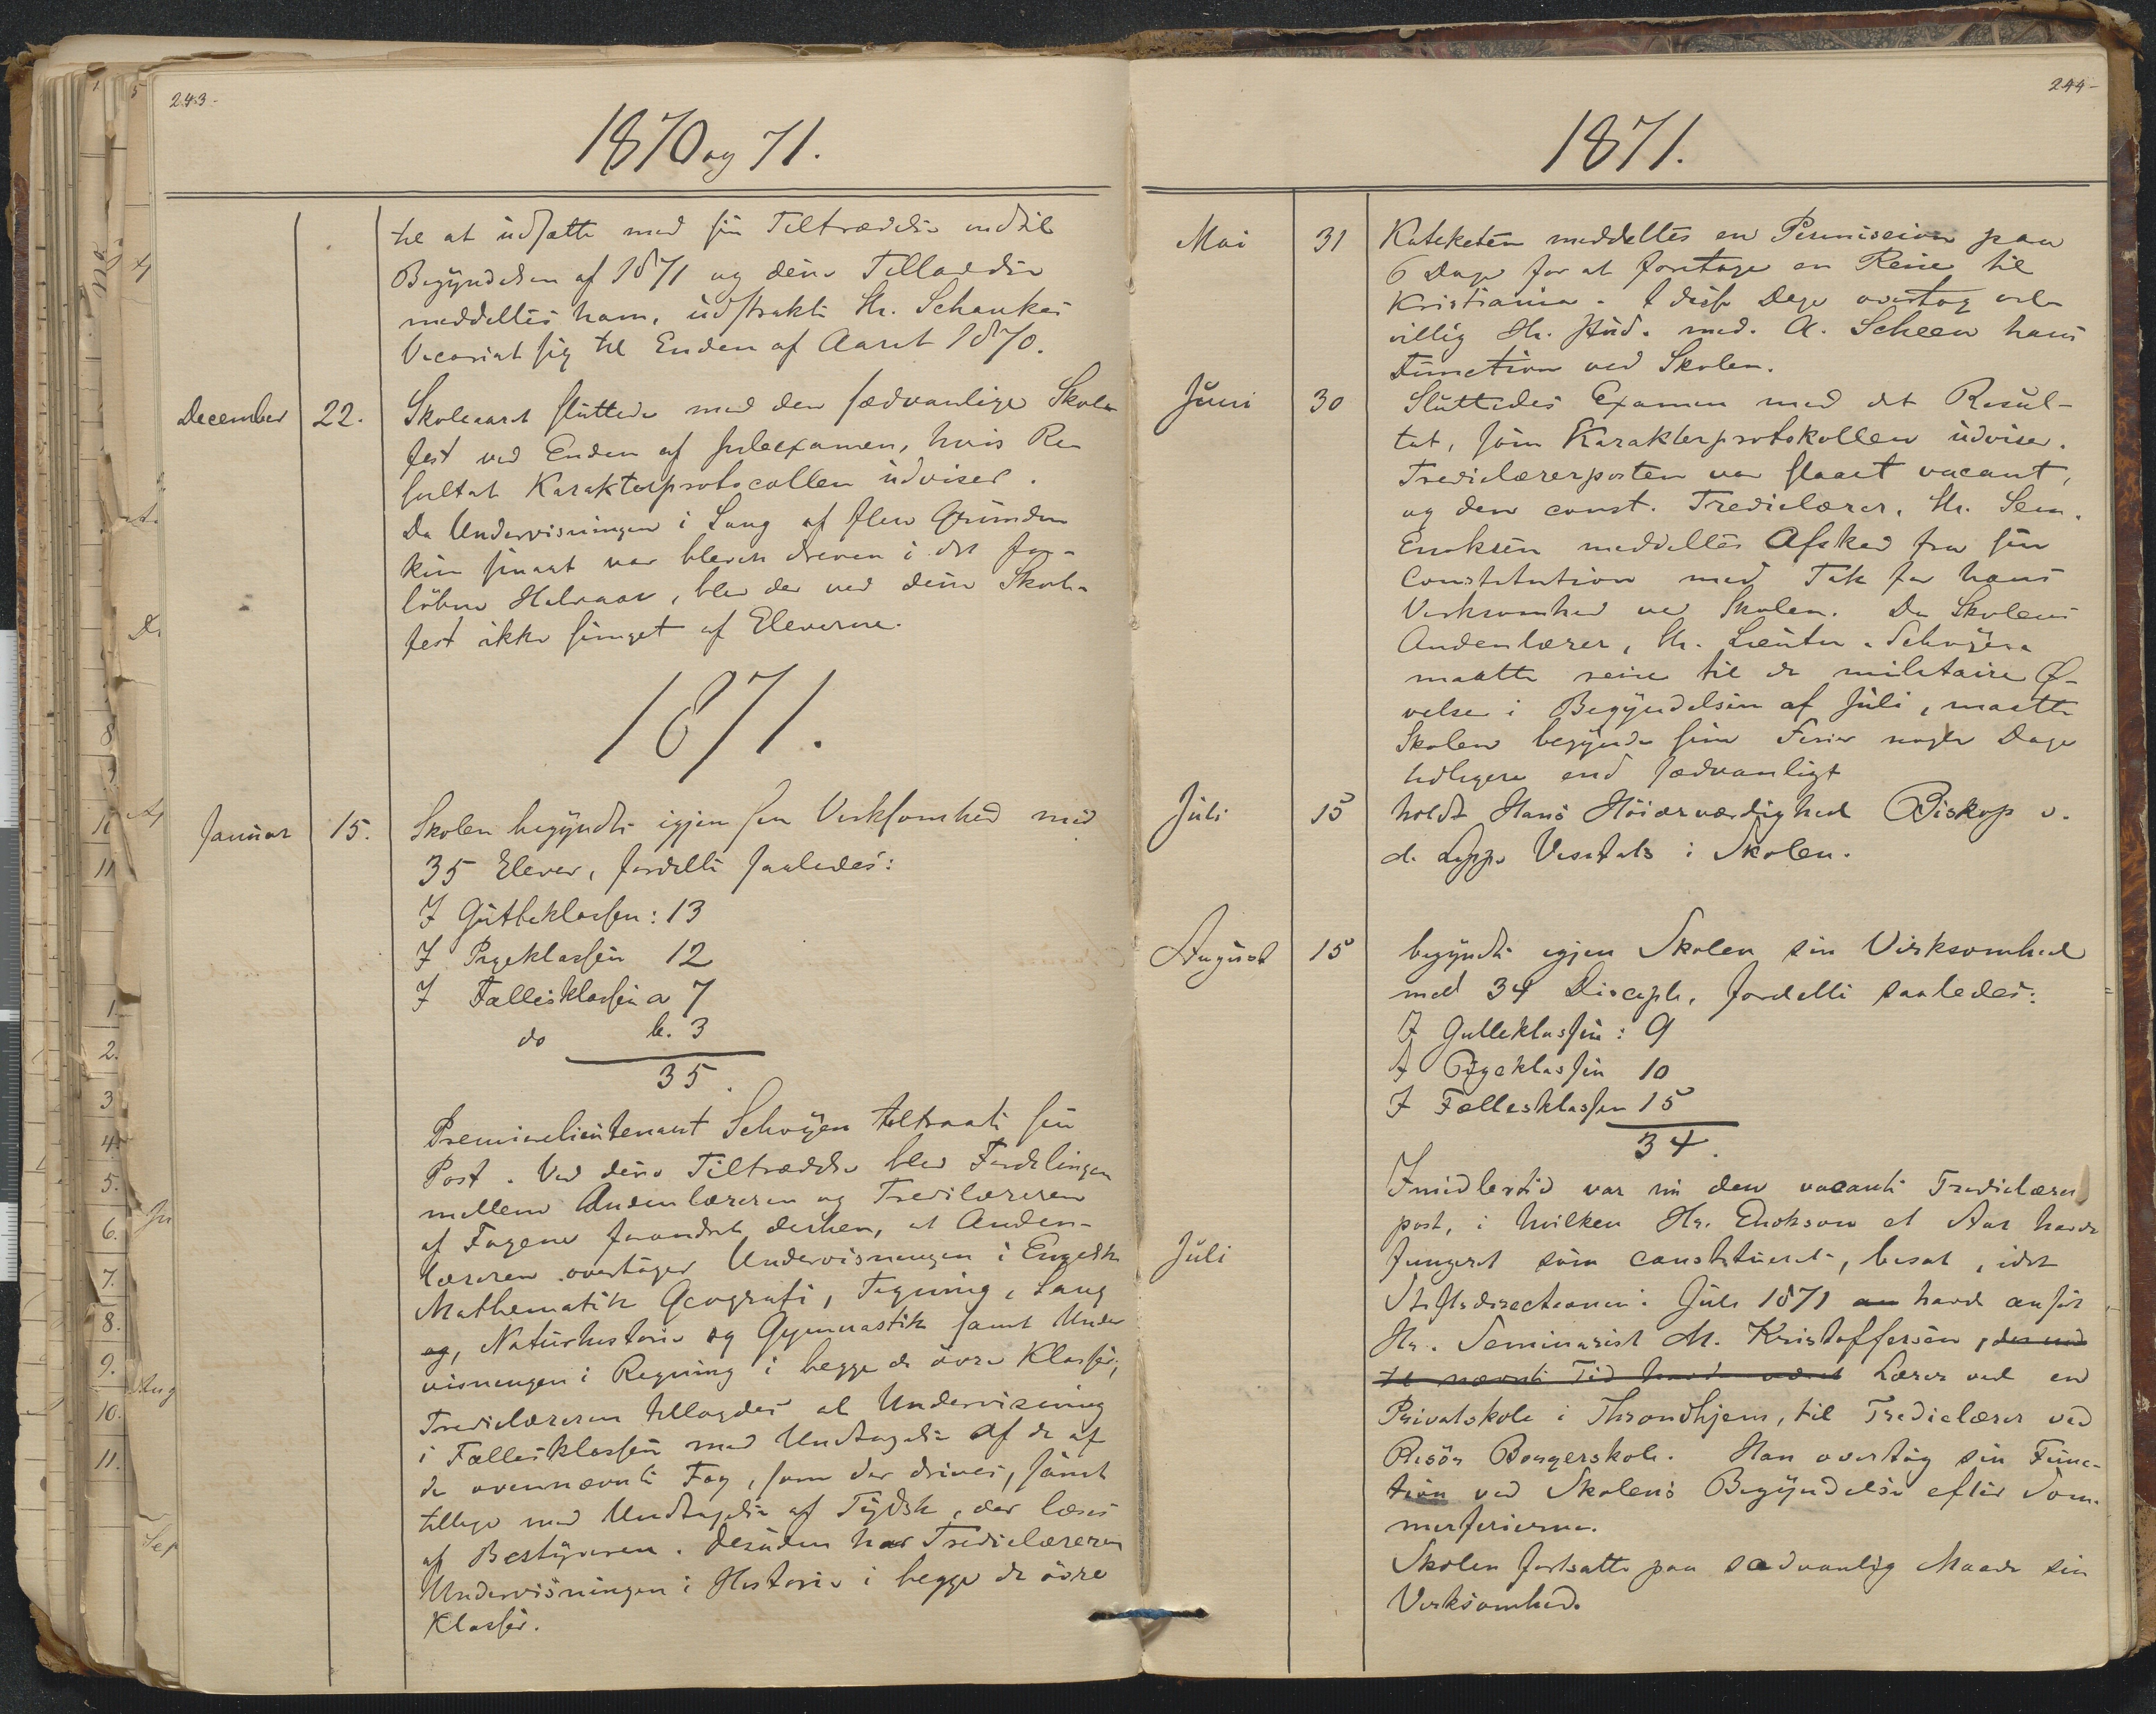 243.
1870 og 71.
til at udsætte med sin Tiltrædelse indtil
Begyndelsen af 1871 og denne Tilladelse
meddeltes ham, udstrakte Hr. Schankes
Vicariat sig til Enden af Aaret 1870.
December 22. Skoleaaret sluttede med den sædvanlige Skole
fest ved Enden af Juleexamen, hvis Re
sultat Karakterprotocollen udviser.
Da Undervisningen i Sang af flere Grunde
kun sparsomt var bleven dreven i det for-
løbne Halvaar, blev der ved denne Skole-
fest ikke sunget af Eleverne.
1871.
Januar 15. Skolen begyndte igjen sin Virksomhed med
35 Elever, fordelte saaledes:
I Gutteklassen: 13
I Pigeklassen 12
I Fællesklassen a 7
do b. 3
35.
Premierlieutenant Schøyen tiltraadte sin
Post. Ved denne Tiltrædelse blev Fordelingen
mellem Andenlæreren og Tredielæreren
af Fagene forandret derhen, at Anden-
læreren overtager Undervisningen i Engelsk
Mathematik Geografi, Tegning, Sang
og, Naturhistorie og Gymnastik samt Under
visningen i Regning i begge de øvre Klasser;
Tredielæreren tillagdes al Undervisning
i Fællesklassen med Undtagelse af de af
de ovennævnte Fag, som der drives, samt
tillige med Undtagelse af Tydsk, der læses
af Bestyreren. Desuden har Tredielæreren
Undervisningen i Historie i begge de øvre
Klasser.
244-
1871.
Mai 31 Kateketen meddeltes en Permission paa
6 Dage for at foretage en Reise til
Kristiania. I disse Dage overtog vel-
villig Hr. stud. med. A. Scheen hans
Function ved Skolen.
Juni 30 Sluttedes Examen med det Resul-
tat, som Karakterprotokollen udviser.
Tredielærerposten var slaaet vacant,
og den const. Tredielærer, Hr. Sem.
Enoksen meddeltes Afsked fra sin
Constitution med Tak for hans
Virksomhed ved Skolen. Da Skolens
Andenlærer, Hr. Lieuten. Schøyen
maatte reise til de militaire Ø-
velser i Begyndelsen af Juli, maatte
Skolen begynde sine Ferier nogle Dage
tidligere end sædvanligt
Juli 15 holdt Hans Høiærværdighed Biskop v.
d. Lippe Visitats i Skolen.
August 15 begyndte igjen Skolen sin Virksomhed
med 34 Disciple, fordelte saaledes:
I Gutteklassen: 9
I Pigeklassen 10
I Fællesklassen 15
34.
Imidlertid var nu den vacante Tredielærer
post, i hvilken Hr. Enokson et Aar havde
Juli fungeret som constitueret, besat, idet
Stiftsdirectionen i Juli 1871 an havde ansat
Hr. Seminarist M. Kristoffersen, der ind
til nævnte Tid havde været Lærer ved en
Privatskole i Throndhjem, til Tredielærer ved
Risør Borgerskole. Han overtog sin Func-
tion ved Skolens Begyndelse efter Som-
merferierne.
Skolen fortsatte paa sædvanlig Maade sin
Virksomhed.